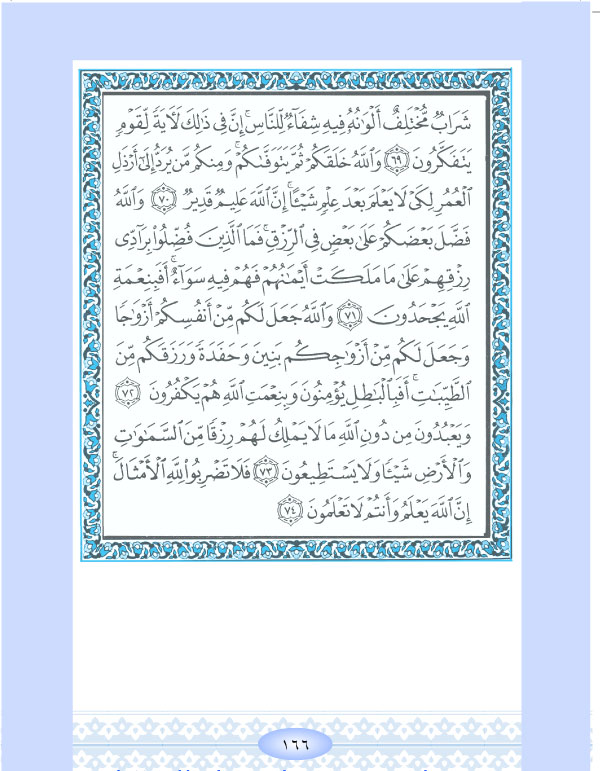 شَرَابٌ مُّخْتَلِفٌ أَلْوَٰنُهُۥ فِيهِ شِفَآءٌ لِّلنَّاسِ ۗ إِنَّ فِى ذَٰلِكَ لَءَايَةً لِّقَوْمٍ
يَتَفَكَّرُونَ ﴿٦٩﴾ وَٱللَّهُ خَلَقَكُمْ ثُمَّ يَتَوَفَّىٰكُمْ ۚ وَمِنكُم مَّن يُرَدُّ إِلَىٰٓ أَرْذَلِ
ٱلْعُمُرِ لِكَىْ لَا يَعْلَمَ بَعْدَ عِلْمٍ شَيْـًٔا ۚ إِنَّ ٱللَّهَ عَلِيمٌ قَدِيرٌ ﴿٧٠﴾ وَٱللَّهُ
فَضَّلَ بَعْضَكُمْ عَلَىٰ بَعْضٍ فِى ٱلرِّزْقِ ۚ فَمَا ٱلَّذِينَ فُضِّلُوا۟ بِرَآدِّى
رِزْقِهِمْ عَلَىٰ مَا مَلَكَتْ أَيْمَٰنُهُمْ فَهُمْ فِيهِ سَوَآءٌ ۚ أَفَبِنِعْمَةِ
ٱللَّهِ يَجْحَدُونَ ﴿٧١﴾ وَٱللَّهُ جَعَلَ لَكُم مِّنْ أَنفُسِكُمْ أَزْوَٰجًا
وَجَعَلَ لَكُم مِّنْ أَزْوَٰجِكُم بَنِينَ وَحَفَدَةً وَرَزَقَكُم مِّنَ
ٱلطَّيِّبَٰتِ ۚ أَفَبِٱلْبَٰطِلِ يُؤْمِنُونَ وَبِنِعْمَتِ ٱللَّهِ هُمْ يَكْفُرُونَ ﴿٧٢﴾
وَيَعْبُدُونَ مِن دُونِ ٱللَّهِ مَا لَا يَمْلِكُ لَهُمْ رِزْقًا مِّنَ ٱلسَّمَٰوَٰتِ
وَٱلْأَرْضِ شَيْـًٔا وَلَا يَسْتَطِيعُونَ ﴿٧٣﴾ فَلَا تَضْرِبُوا۟ لِلَّهِ ٱلْأَمْثَالَ ۚ
إِنَّ ٱللَّهَ يَعْلَمُ وَأَنتُمْ لَا تَعْلَمُونَ ﴿٧٤﴾
١٦٦